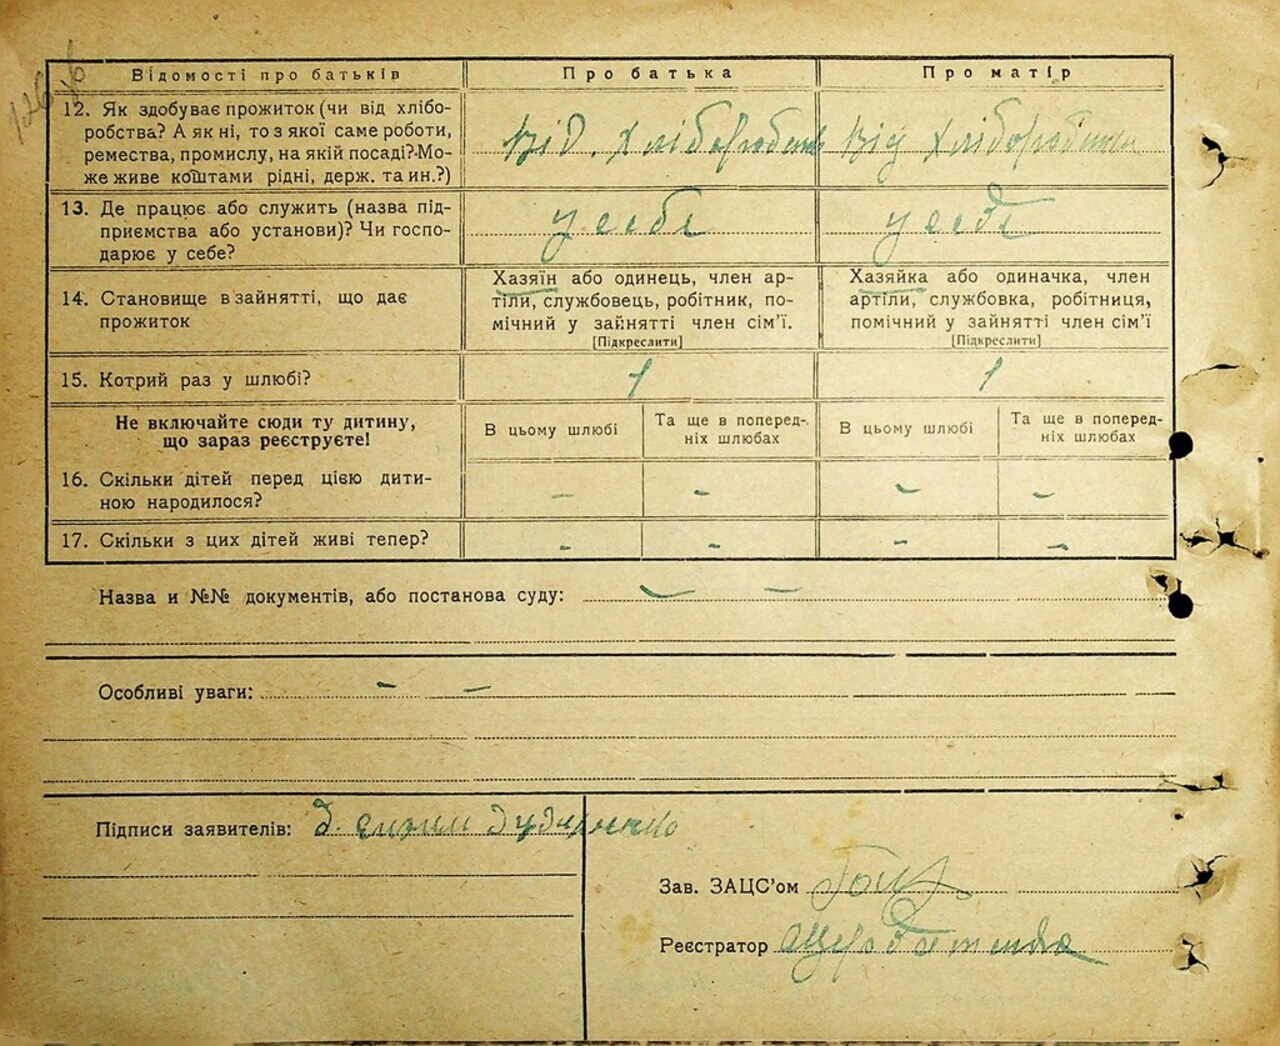 Відомості про батьків
Про батька
Про матір
12. Як здобуває прожиток (чи від хлібо-
робства? А як ні, то з якої саме роботи,
ремества, промислу, на якій посаді? Мо-
же живе коштами рідні, держ. та ин.?)
Від. хліборобства
Від хліборобства
13. Де працює або служить (назва під-
приємства або установи)? Чи госпо-
дарює у себе?
у себе
у себе
14. Становище в зайнятті, що дає
прожиток
Хазяїн або одинець, член ар-
тіли, службовець, робітник, по-
мічний у зайнятті член сім’ї.
[Підкреслити]
Хазяйка або одиначка, член
артіли, службовка, робітниця,
помічний у зайнятті член сім’ї
[Підкреслити]
15. Котрий раз у шлюбі?
1
1
Не включайте сюди ту дитину,
що зараз реєструєте!
В цьому шлюбі
Та ще в поперед-
ніх шлюбах
В цьому шлюбі
Та ще в поперед-
ніх шлюбах
16. Скільки дітей перед цією дити-
ною народилося?
– – – –
17. Скільки з цих дітей живі тепер?
– – – –
Назва и №№ документів, або постанова суду: – –
Особливі уваги: – –
Підписи заявителів:
Зав. ЗАЦС’ом
Реєстратор